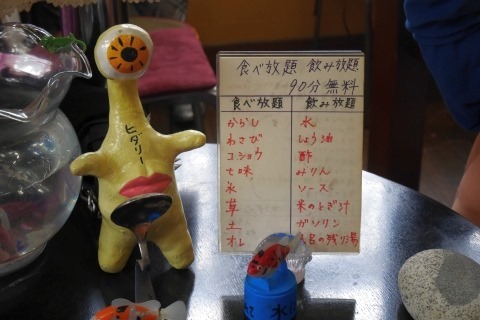 食べ放題 飲み放題
90分 無料
食べ放題 飲み放題
からし 水
わさび しょう油
コショウ 酢
七味 みりん
氷 ソース
草 米のとぎ汁
土 ガソリン
オレ の残り湯
ヒダリー
水